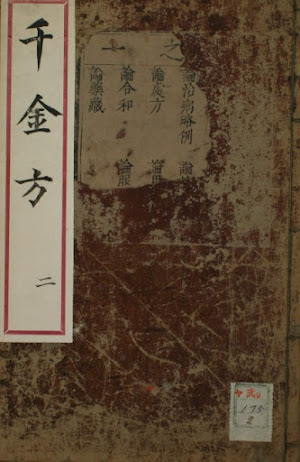 千金方 二
之一
論治病略例 論
論處方 論用
論合和 論服
論藥藏
175
2